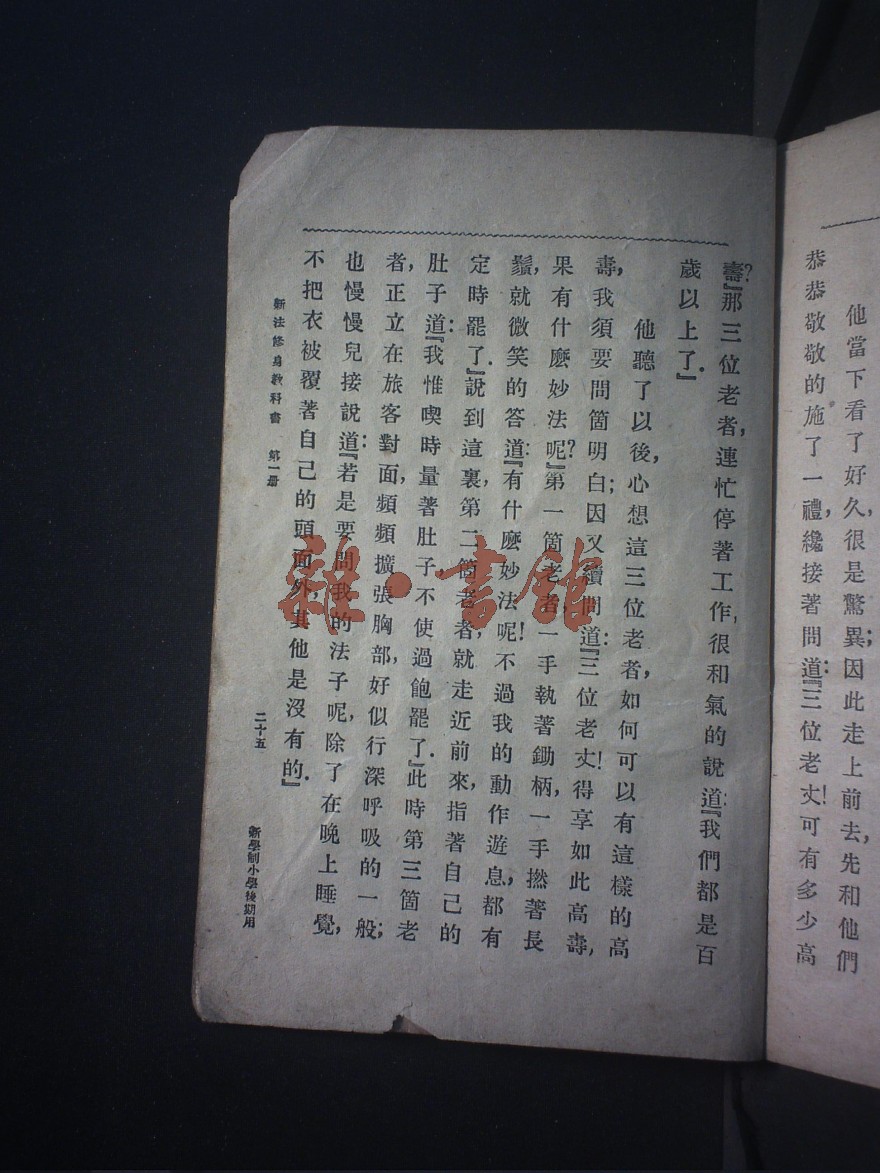 他當下看了好久，很是驚異；因此走上前去，先和他們
恭恭敬敬的施了一禮，纔接著問道：『三位老丈！可有多少高
壽？』那三位老者，連忙停著工作，很和氣的說道：『我們都是百
歲以上了．』
他聽了以後，心想這三位老者，如何可以有這樣的高
壽，我須要問箇明白；因又續問道：『三位老丈！得享如此高壽，
果有什麼妙法呢？』第一箇老者，一手執著鋤柄，一手撚著長
鬚，就微笑的答道：『有什麼妙法呢！不過我的動作遊息，都有
定時罷了．』說到這裏，第二箇老者，就走近前來，指著自己的
肚子道：『我惟喫時量著肚子不使過飽罷了．』此時第三箇老
者，正立在旅客對面，頻頻擴張胸部，好似行深呼吸的一般；
也慢慢兒接說道：『若是要問我的法子呢，除了在晚上睡覺，
不把衣被覆著自己的頭面外，其他是沒有的．』
新法修身教科書　第一册　二十五　新學制小學後期用
雜·書館